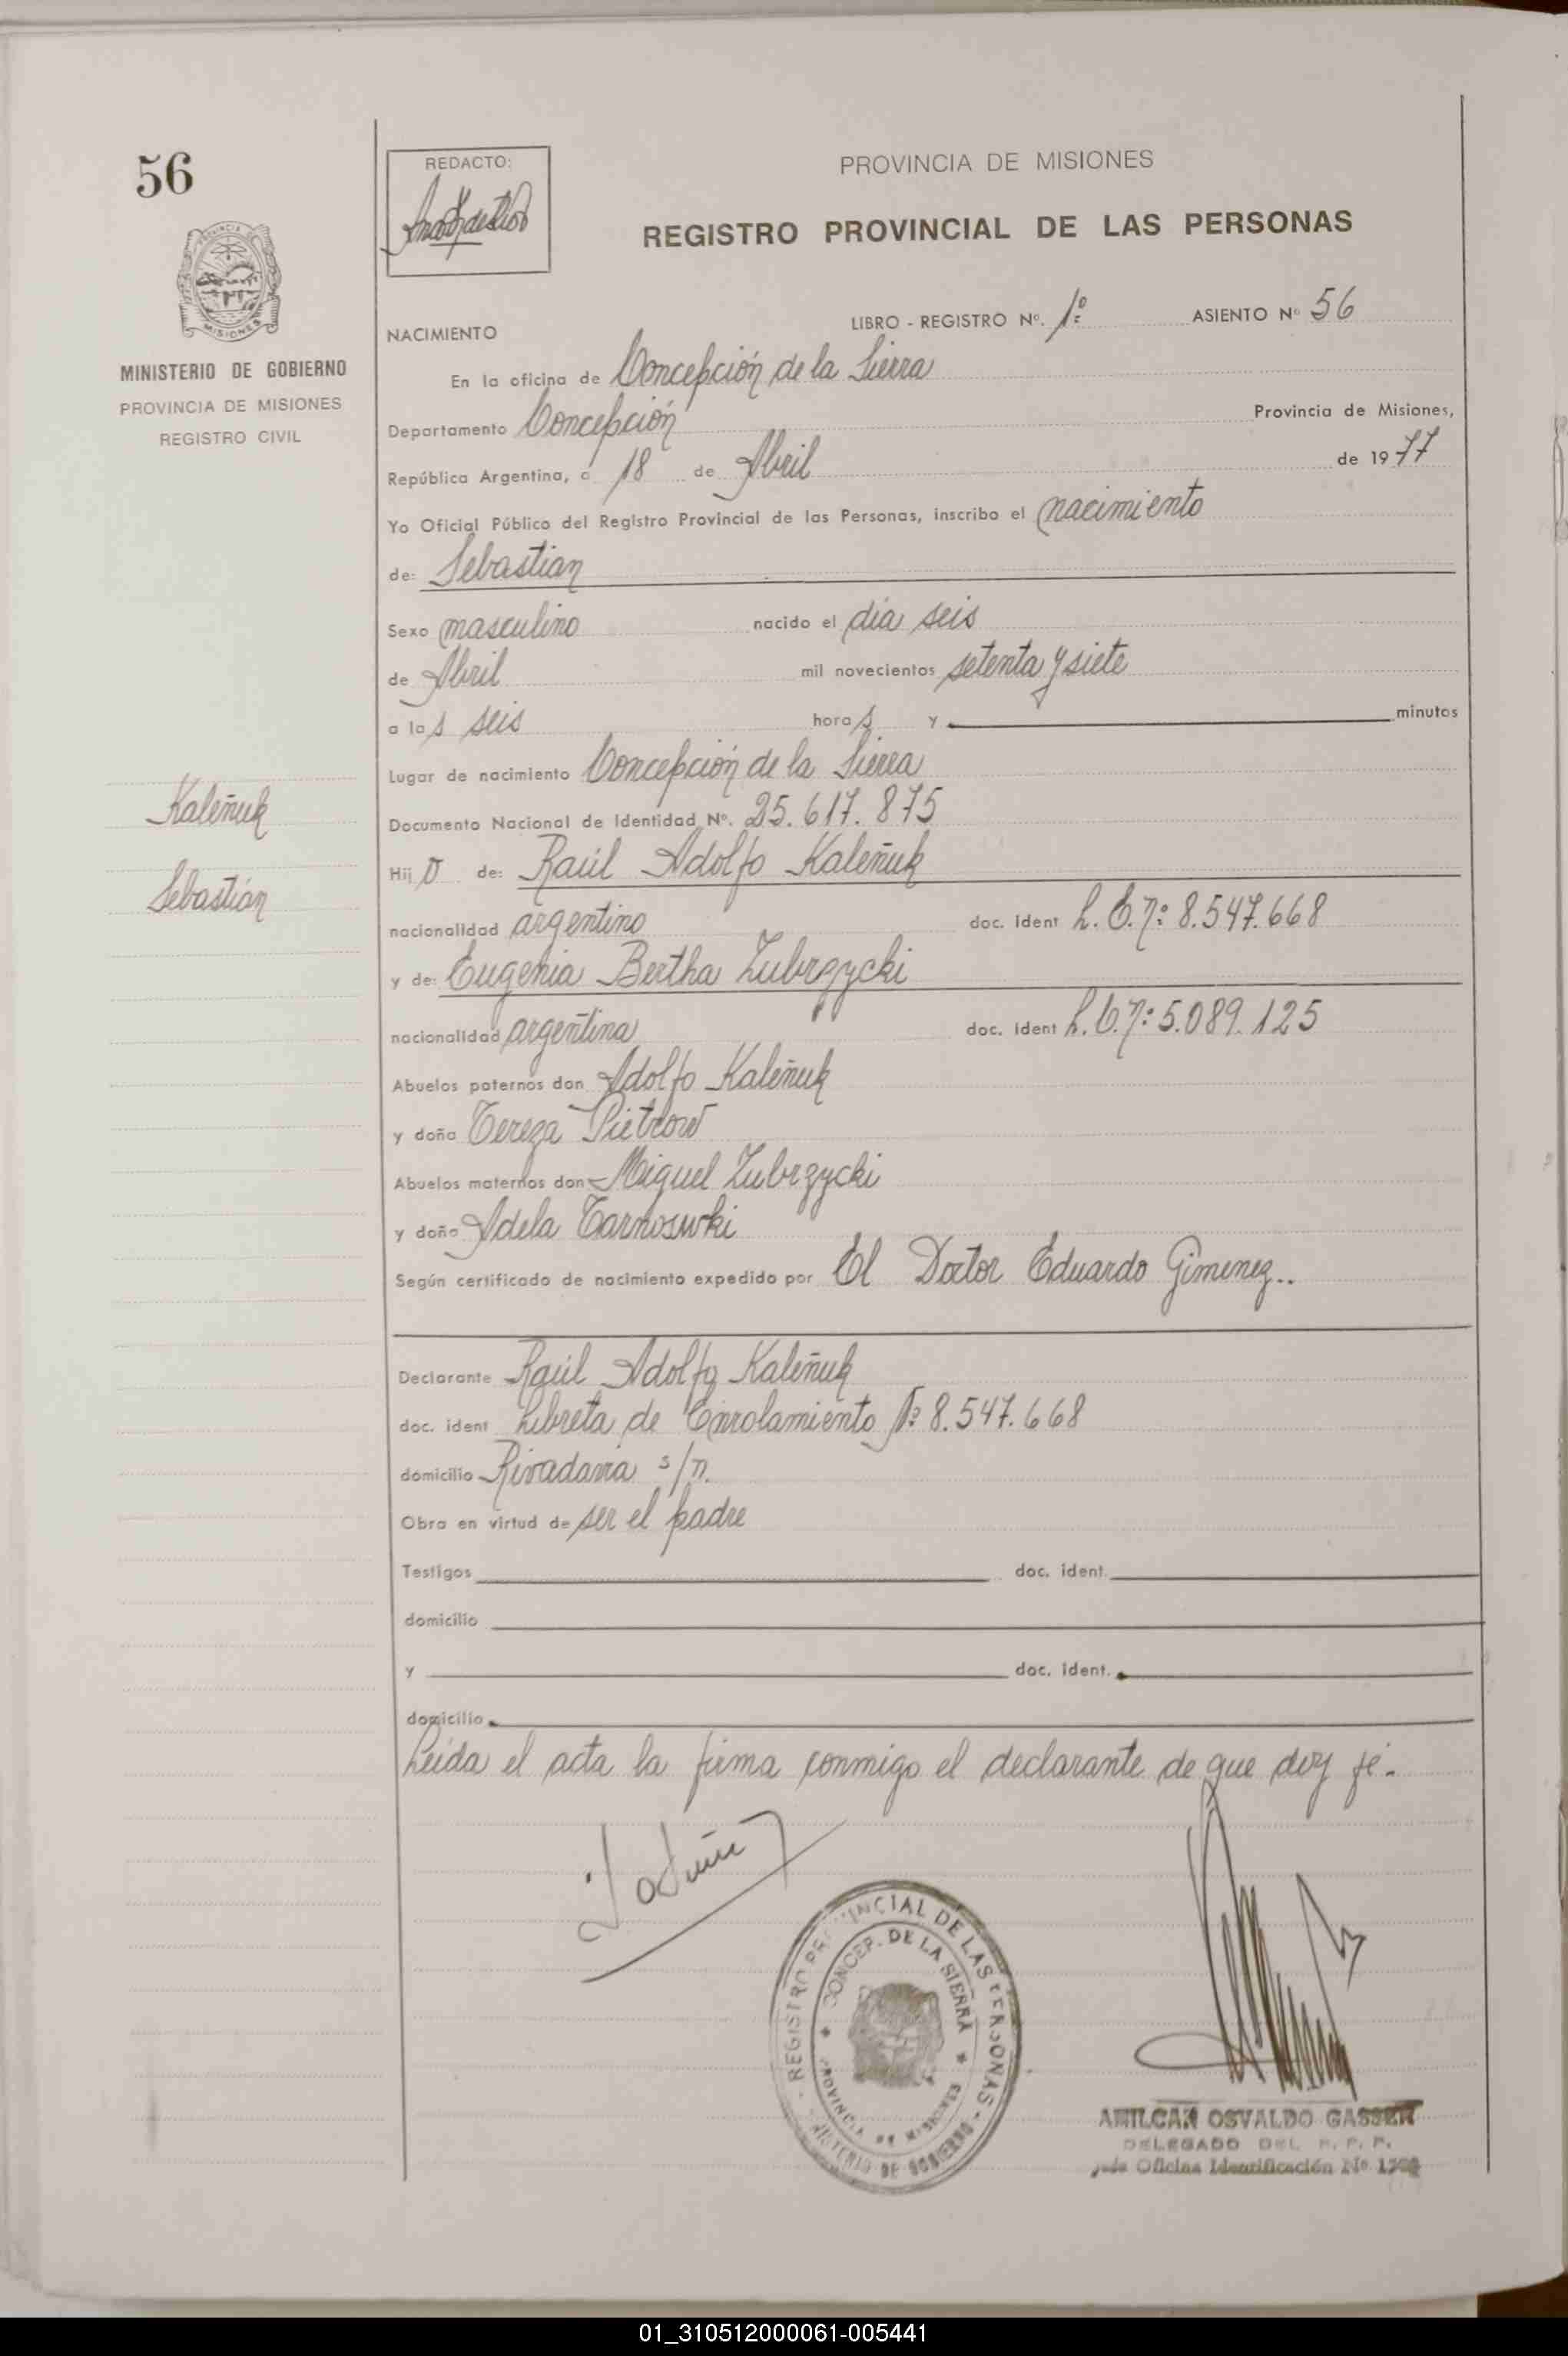 56
PROVINCIA DE MISIONES
MINISTERIO DE GOBIERNO
PROVINCIA DE MISIONES
REGISTRO CIVIL
Kaleñuk
Sebastián
REDACTO:
PROVINCIA DE MISIONES
REGISTRO PROVINCIAL DE LAS PERSONAS
NACIMIENTO LIBRO - REGISTRO Nº. 1º ASIENTO Nº 56
En la oficina de Concepción de la Sierra
Departamento Concepción Provincia de Misiones,
República Argentina, a 18 de Abril de 1977
Yo Oficial Público del Registro Provincial de las Personas, inscribo el nacimiento
de: Sebastian
Sexo masculino nacido el día seis
de Abril mil novecientos setenta y siete
a las seis horas y minutos
Lugar de nacimiento Concepción de la Sierra
Documento Nacional de Identidad Nº. 25.617.875
Hijo de: Raúl Adolfo Kaleñuk
nacionalidad argentino doc. ident L.E.Nº: 8.547.668
y de: Eugenia Bertha Zubrzycki
nacionalidad argentina doc. ident L.C.Nº: 5.089.125
Abuelos paternos don Adolfo Kaleñuk
y doña Tereza Pietrow
Abuelos maternos don Miguel Zubrzycki
y doña Adela Tarnoswki
Según certificado de nacimiento expedido por El Doctor Eduardo Gimenez..
Declarante Raúl Adolfo Kaleñuk
doc. ident Libreta de Enrolamiento Nº 8.547.668
domicilio Rivadavia s/n.
Obra en virtud de ser el padre
Testigos doc. ident.
domicilio
y doc. ident.
domicilio
Leída el acta la firma conmigo el declarante de que doy fé.
REGISTRO PROVINCIAL DE LAS PERSONAS
CONCEP. DE LA SIERRA
PROVINCIA DE MISIONES
MINISTERIO DE GOBIERNO
AMILCAR OSVALDO GASSER
DELEGADO DEL R. P. P.
Oficina Identificación No
01_310512000061-005441